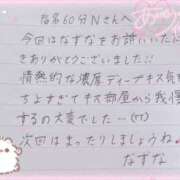 指名60分Nさんへ
今回はなずなをお誘いいただ
きありがてうございました!!
情熱的な濃厚ディープキス気持
ちよすぎてキス部屋から我慢
するの大変でした…(TT)
次回はまったりしましょうね。
なずな